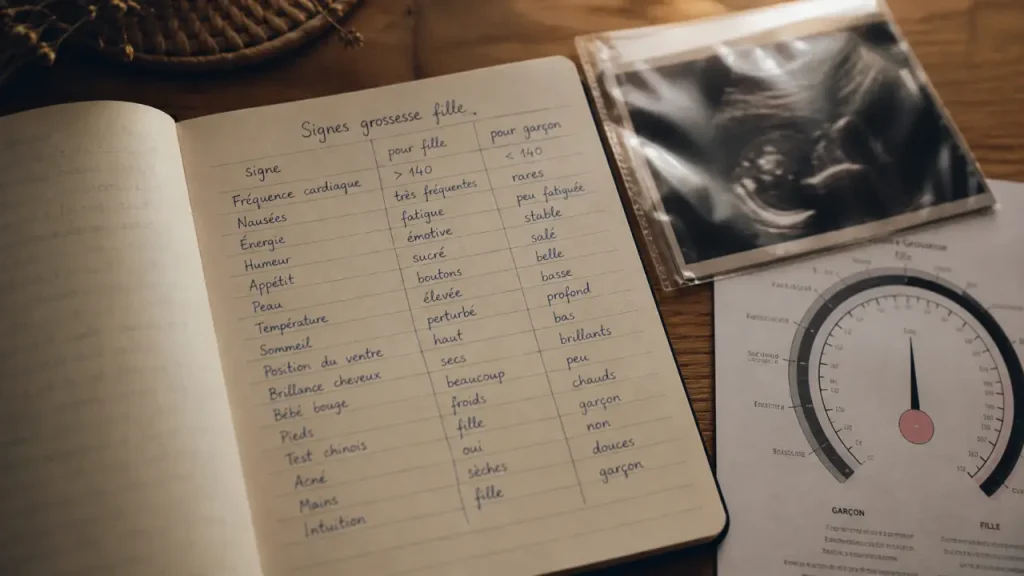 Signes grossesse fille.
signe pour fille pour garçon
Fréquence cardiaque > 140 < 140
Nausées très fréquentes rares
Énergie fatigue peu fatiguée
Humeur émotive stable
Appétit sucré salé
Peau boutons belle
Température élevée basse
Sommeil perturbé profond
Position du ventre haut bas
Brillance cheveux secs brillants
Bébé bouge beaucoup peu
Pieds froids chauds
Test chinois fille garçon
Acné oui non
Mains sèches douces
Intuition fille garçon
GARÇON
FILLE